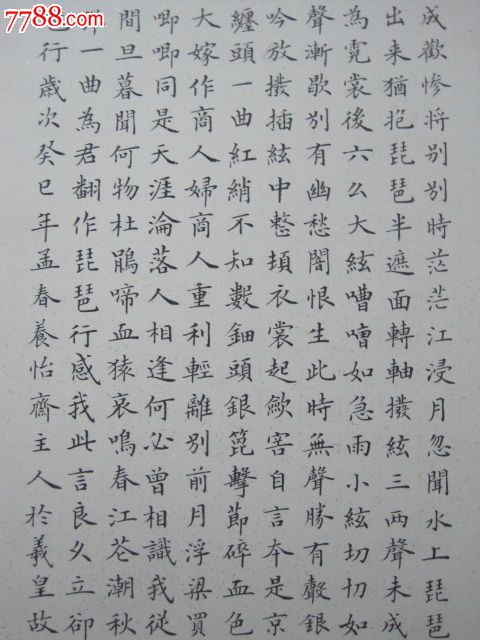 7788.com
成歡慘將別別時茫茫江浸月忽聞水上琵琶
出来猶抱琵琶半遮面轉軸撥絃三兩聲未成
為霓裳後六么大絃嘈嘈如急雨小絃切切如
聲漸歇別有幽愁闇恨生此時無聲勝有聲銀
吟放撥插絃中整頓衣裳起歛容自言本是京
纏頭一曲紅綃不知數鈿頭銀篦擊節碎血色
大嫁作商人婦商人重利輕離別前月浮梁買
唧唧同是天涯淪落人相逢何必曾相識我從
間旦暮聞何物杜鵑啼血猿哀鳴春江花潮秋
一曲為君翻作琵琶行感我此言良久立卻
行歲次癸巳年孟春養怡齋主人於羲皇故